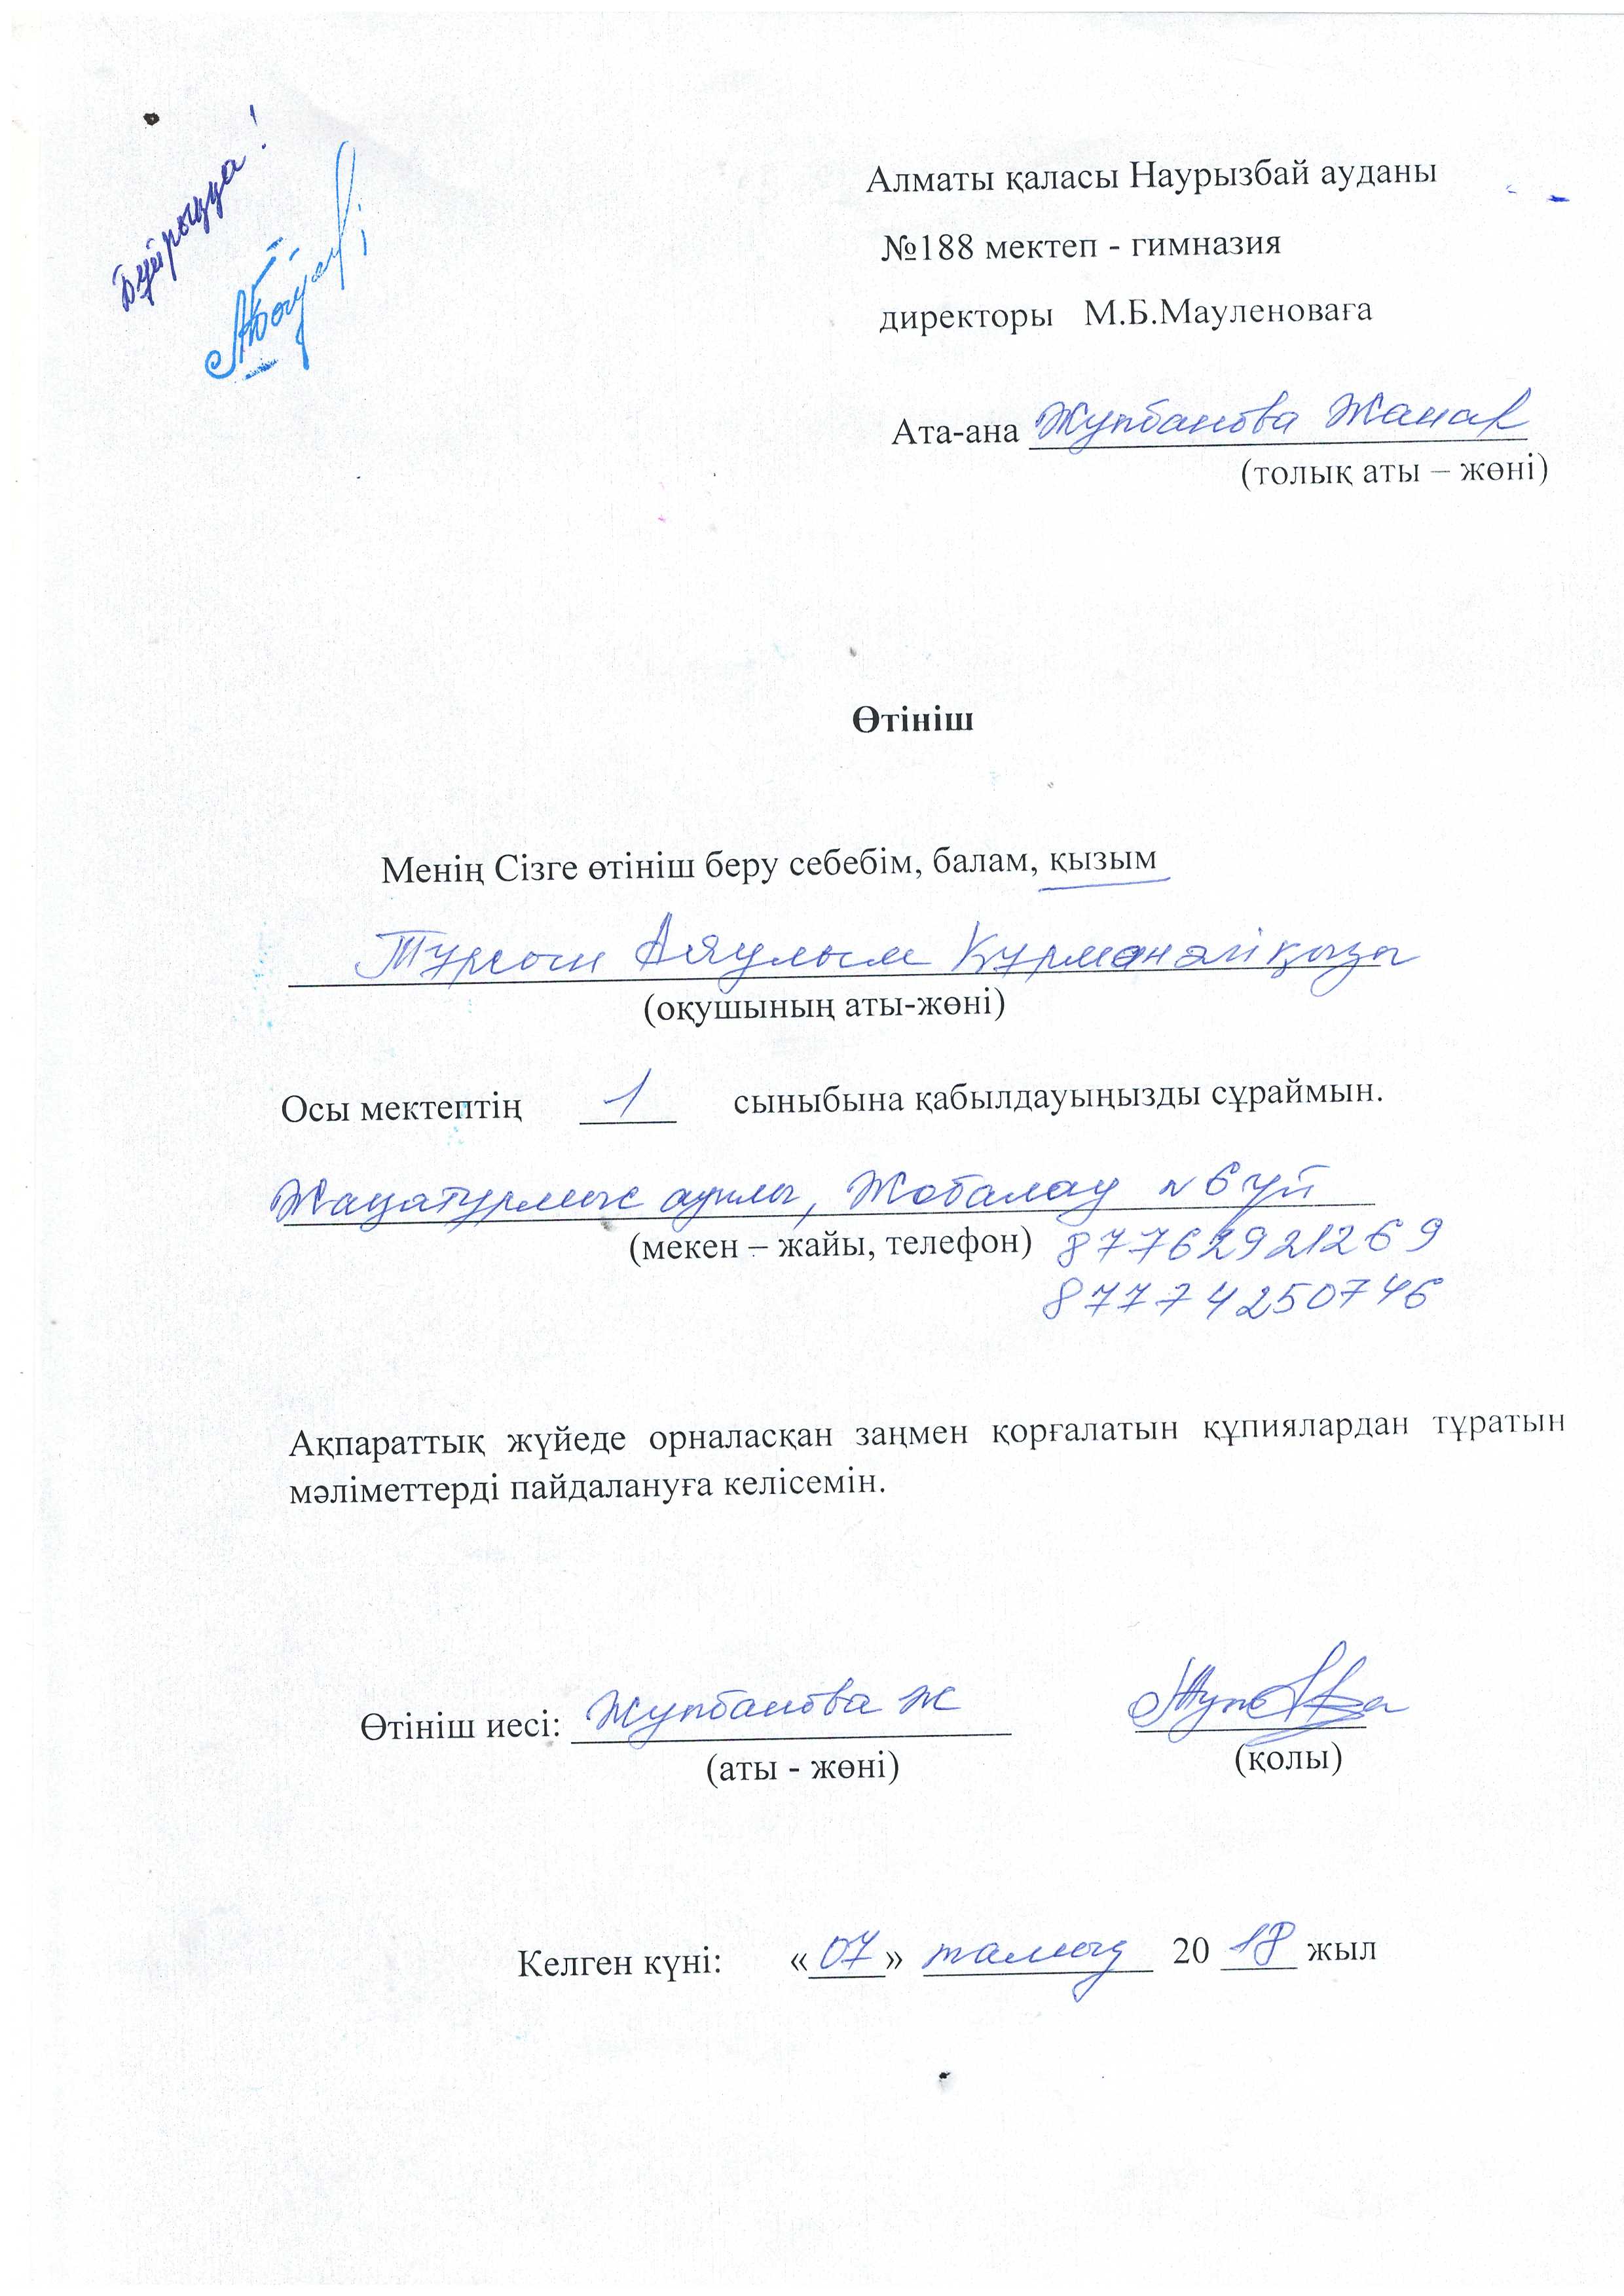 Бұйрыққа!
Алматы қаласы Наурызбай ауданы
№188 мектеп - гимназия
директоры М.Б.Мауленоваға
Ата-ана Жупбанова Жанар
(толық аты – жөні)
Өтініш
Менің Сізге өтініш беру себебім, балам, қызым
Турсын Аяулым Құрманәліқызы
(оқушының аты-жөні)
Осы мектептің 1 сыныбына қабылдауыңызды сұраймын.
Жаңатұрмыс ауылы, Жобалау №6 үй
(мекен – жайы, телефон) 87762921269
87774250746
Ақпараттық жүйеде орналасқан заңмен қорғалатын құпиялардан тұратын
мәліметтерді пайдалануға келісемін.
Өтініш иесі: Жупбанова Ж
(аты - жөні) (қолы)
Келген күні: «07» тамыз 20 18 жыл